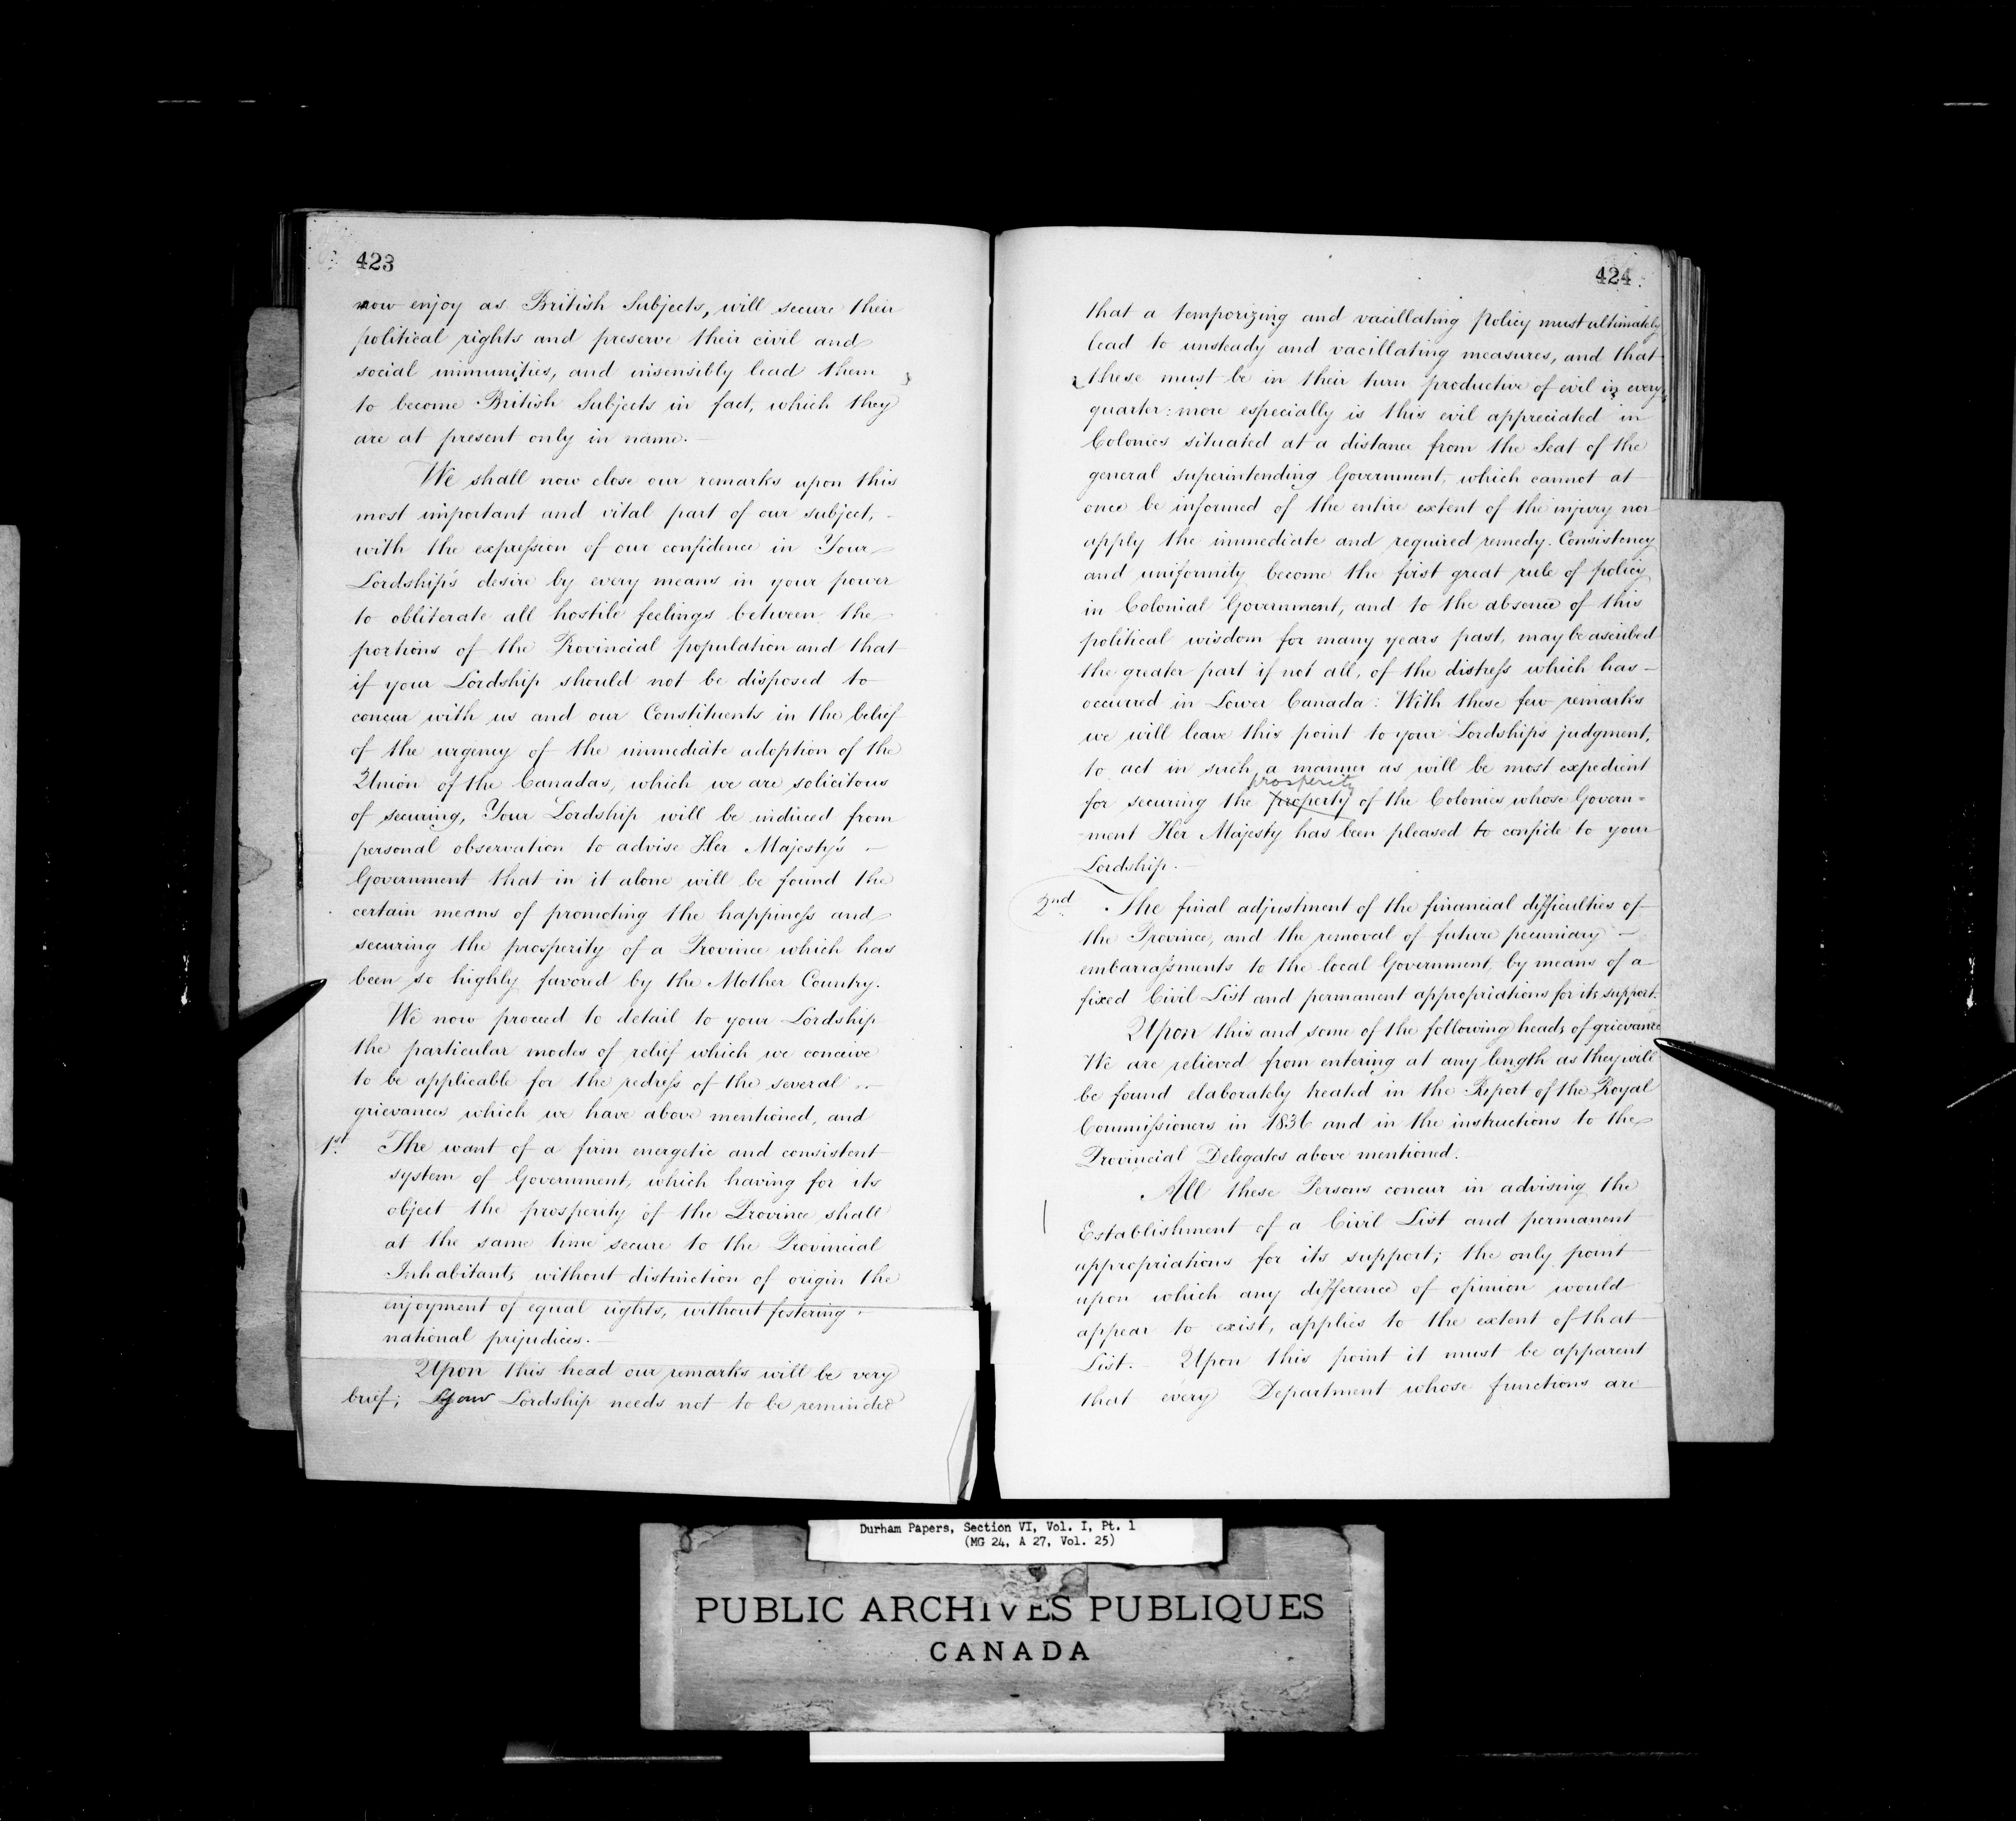 423
now enjoy as British Subjects, will secure their
political rights and preserve their civil and
social immunities, and insensibly lead them
to become British Subjects in fact, which they
are at present only in name. —
We shall now close our remarks upon this
most important and vital part of our subject, -
with the expression of our confidence in Your
Lordship's desire by every means in your power
to obliterate all hostile feelings between the
portions of the Provincial population and that
if your Lordship should not be disposed to
concur with us and our Constituents in the belief
of the urgency of the immediate adoption of the
Union of the Canadas, which we are solicitous
of securing, Your Lordship will be induced from
personal observation to advise Her Majesty's —
Government that in it alone will be found the
certain means of promoting the happiness and
securing the prosperity of a Province which has
been so highly favored by the Mother Country.
We now proceed to detail to your Lordship
the particular modes of relief which we conceive
to be applicable for the redress of the several —
grievances which we have above mentioned, and
1st. The want of a firm energetic and consistent
system of Government, which having for its
object the prosperity of the Province shall
at the same time secure to the Provincial
Inhabitants without distinction of origin the
enjoyment of equal rights, without fostering -
national prejudices. —
Upon this head our remarks will be very
brief; Your Lordship needs not to be reminded
424
that a temporizing and vacillating policy must ultimately
lead to unsteady and vacillating measures, and that
these must be in their turn productive of evil in every
quarter: more especially is this evil appreciated in
Colonies situated at a distance from the Seat of the
general superintending Government, which cannot at
once be informed of the entire extent of the injury nor
apply the immediate and required remedy. Consistency
and uniformity become the first great rule of policy
in Colonial Government, and to the absence of this
political wisdom for many years past, may be ascribed
the greater part if not all, of the distress which has —
occurred in Lower Canada: With these few remarks
we will leave this point to your Lordship's judgment,
to act in such a manner as will be most expedient
prosperity
for securing the property of the Colonies whose Govern=
-ment Her Majesty has been pleased to confide to your
Lordship. —
2nd. The final adjustment of the financial difficulties of
the Province, and the removal of future pecuniary —
embarrassments to the local Government, by means of a
fixed Civil List and permanent appropriations for its support.
Upon this and some of the following heads of grievance
We are relieved from entering at any length as they will
be found elaborately treated in the Report of the Royal
Commissioners in 1836 and in the instructions to the
Provincial Delegates above mentioned. —
All these Persons concur in advising the
Establishment of a Civil List and permanent
appropriations for its support; the only point
upon which any difference of opinion would
appear to exist, applies to the extent of that
List. — Upon this point it must be apparent
that every Department whose functions are
Durham Papers, Section VI, Vol. I, Pt. 1
(MG 24, A 27, Vol. 25)
PUBLIC ARCHIVES PUBLIQUES
CANADA